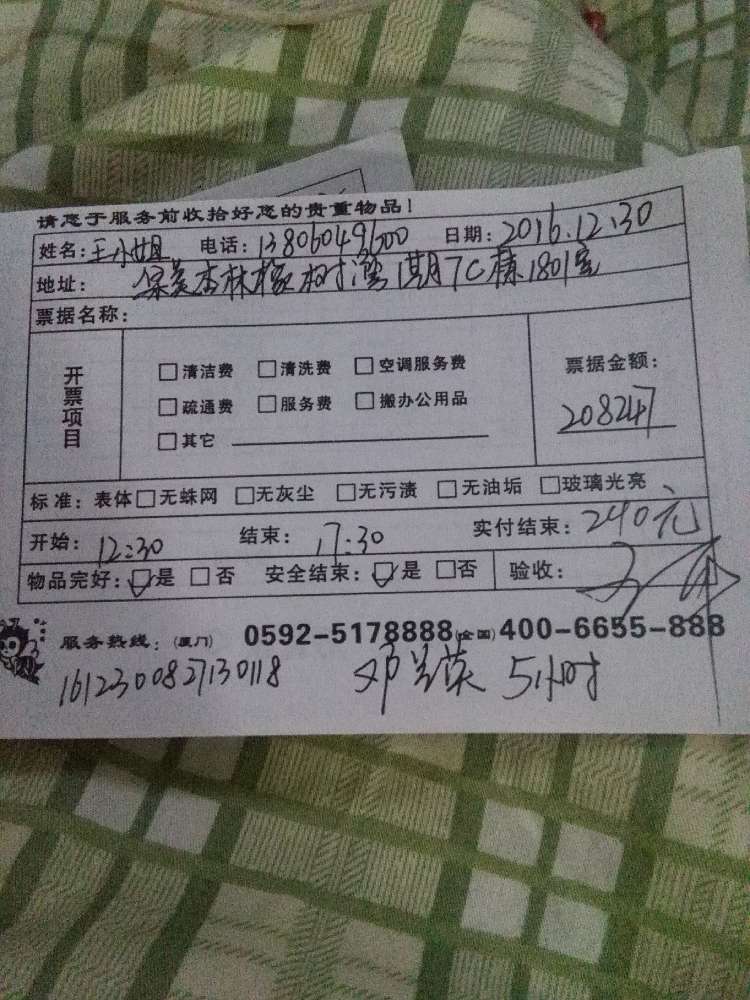 请您于服务前收拾好您的贵重物品！
姓名：王小姐 电话：13806049600 日期：2016.12.30
地址：保美杏林橡树湾1期7C栋1801室
票据名称：
开票项目
□清洁费 □清洗费 □空调服务费
□疏通费 □服务费 □搬办公用品
□其它
票据金额：
208247
标准：表体□无蛛网 □无灰尘 □无污渍 □无油垢 □玻璃光亮
开始：12:30 结束：17:30 实付结束：240元
物品完好：☑是 □否 安全结束：☑是 □否 验收：
服务热线：(厦门) 0592-5178888(全国)400-6655-888
1612300827130118 邓兰英 5小时